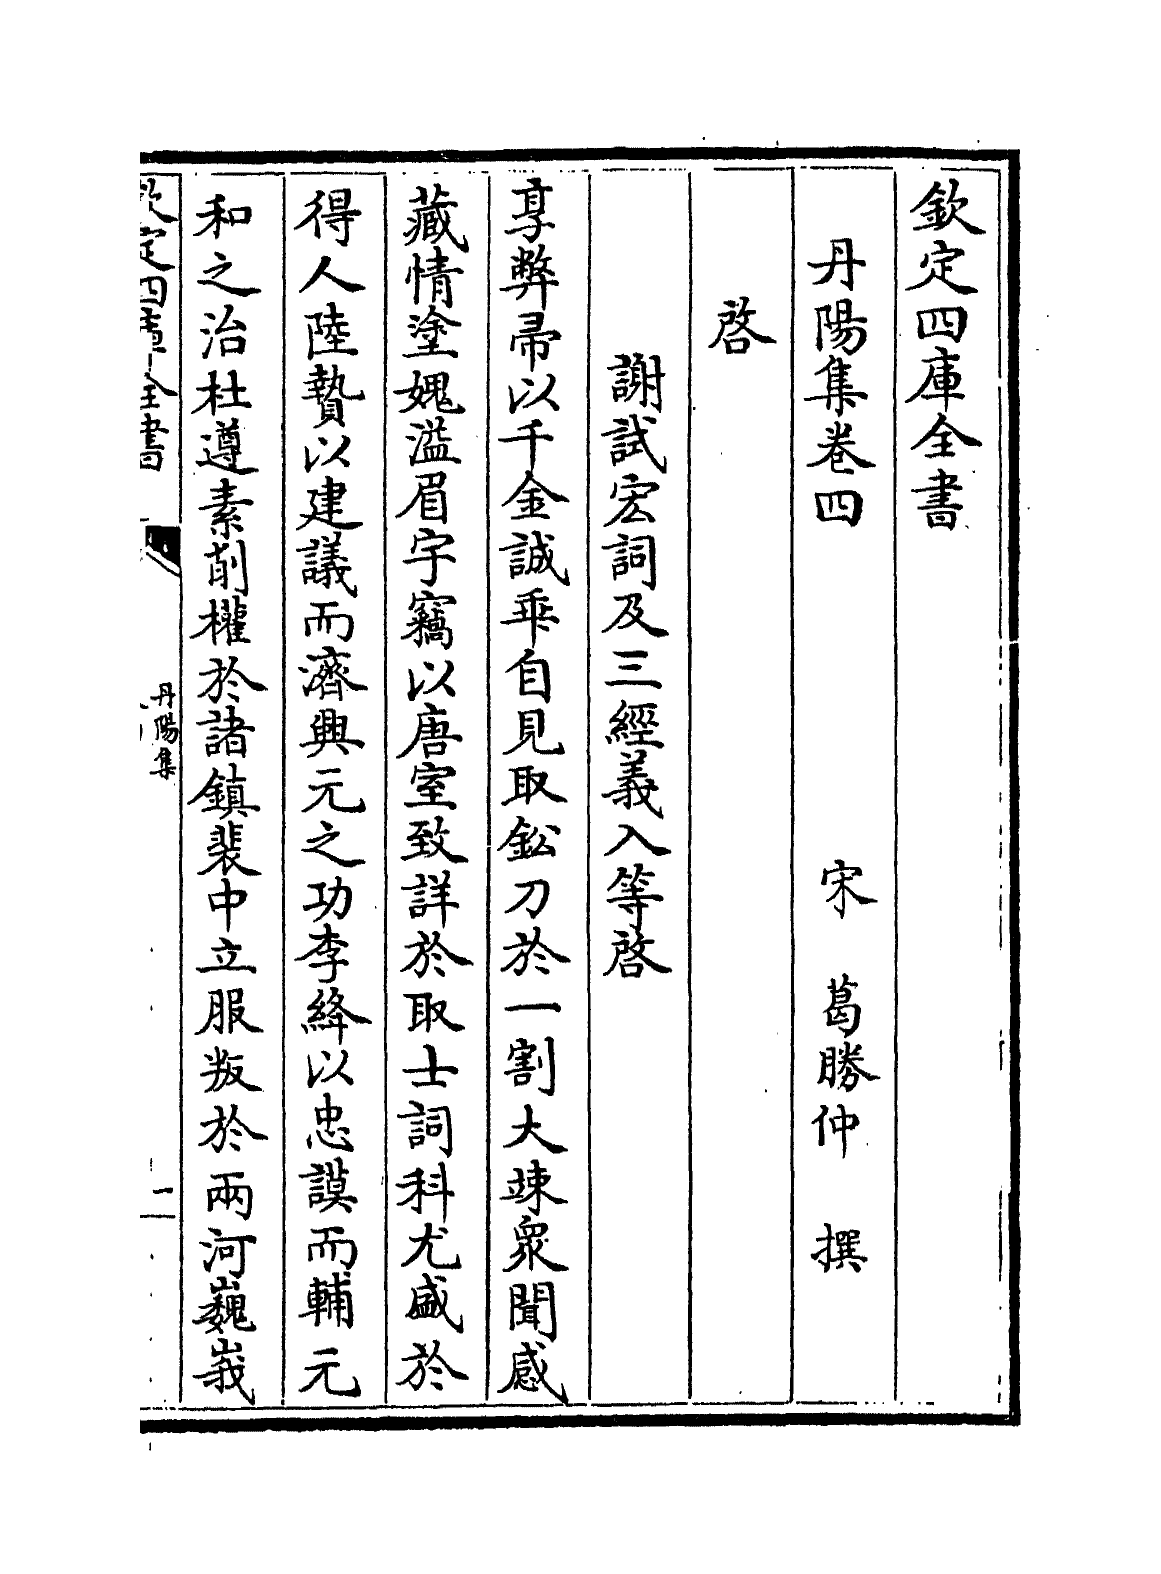 欽定四庫全書
丹陽集卷四
宋 葛勝仲 撰
啓
謝試宏詞及三經義入等啓
享弊帚以千金誠乖自見取鈆刀於一割大竦衆聞感
藏情塗媿溢眉宇竊以唐室致詳於取士詞科尤盛於
得人陸贄以建議而濟興元之功李絳以忠謨而輔元
和之治杜遵素削權於諸鎮裴中立服叛於兩河巍峩
欽定四庫全書
丹陽集
二